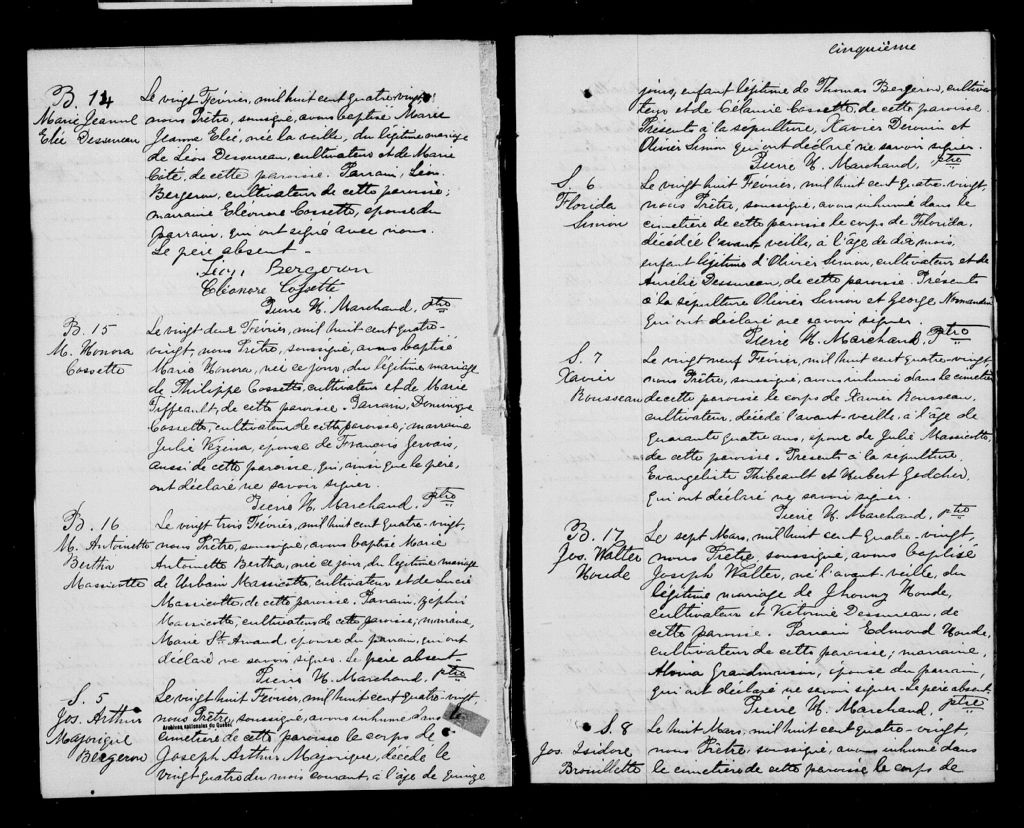 B. 14
Marie Jeanne
Elie Dessureau
Le vingt Février, mil huit cent quatre-vingt,
nous Prêtre, soussigné, avons baptisé Marie
Jeanne Elié, née la veille, du légitime mariage
de Léon Dessureau, cultivateur et de Marie
Coté, de cette paroisse. Parrain, Léon
Bergeron, cultivateur de cette paroisse;
marraine Eléonore Cossette, épouse du
parrain, qui ont signé avec nous.
Le père absent -
Bergeron
Eléonore Cossette
Pierre H. Marchand, Ptre
B. 15
M. Honora
Cossette
Le vingt deux Février, mil huit cent quatre-
vingt, nous Prêtre, soussigné, avons baptisé
Marie Honora, née ce jour, du légitime mariage
de Philippe Cossette, cultivateur et de Marie
Tiffeault, de cette paroisse. Parrain, Dominique
Cossette, cultivateur de cette paroisse; marraine
Julie Vézina, épouse de François Gervais,
aussi de cette paroisse, qui, ainsi que le père,
ont déclaré ne savoir signer.
Pierre H. Marchand, Ptre
B. 16
M. Antoinette
Bertha
Massicotte
Le vingt trois Février, mil huit cent quatre-vingt,
nous Prêtre, soussigné, avons baptisé Marie
Antoinette Bertha, née ce jour, du légitime mariage
de Urbain Massicotte, cultivateur et de Lucie
Massicotte, de cette paroisse. Parrain, Zéphir
Massicotte, cultivateur de cette paroisse; marraine,
Marie St. Amand, épouse du parrain, qui ont
déclaré ne savoir signer. Le père absent
Pierre H. Marchand, Ptre
S. 5
Jos. Arthur
Majorique
Bergeron
Le vingt huit Février, mil huit cent quatre-vingt,
nous Prêtre, soussigné, avons inhumé dans le
Archives nationales du Québec
cimetière de cette paroisse le corps de
Joseph Arthur Majorique, décédé le
vingt quatre du mois courant, à l'âge de quinze
cinquième
jours, enfant légitime de Thomas Bergeron, cultiva-
teur et de Célanie Cossette, de cette paroisse
Présents à la sépulture, Xavier Derouin et
Olivier Simon qui ont déclaré ne savoir signer.
Pierre H. Marchand, Ptre
S. 6
Florida
Simon
Le vingt huit Février, mil huit cent quatre-vingt,
nous Prêtre, soussigné, avons inhumé dans le
cimetière de cette paroisse le corps de Florida,
décédée l'avant veille, à l'âge de dix mois,
enfant légitime d'Olivier Simon, cultivateur et de
Aurélie Dessureau, de cette paroisse. Présents
à la sépulture Olivier Simon et George Normandin
qui ont déclaré ne savoir signer.
Pierre H. Marchand, Ptre
S. 7
Xavier
Rousseau
Le vingt-neuf Février, mil huit cent quatre-vingt,
nous Prêtre, soussigné, avons inhumé dans le cimetière
de cette paroisse le corps de Xavier Rousseau,
cultivateur, décédé l'avant-veille, à l'âge de
quarante quatre ans, époux de Julie Massicotte,
de cette paroisse. Présents à la sépulture,
Evangeliste Thibeault et Hubert
qui ont déclaré ne savoir signer.
Pierre H. Marchand, Ptre
B. 17
Jos. Walter
Houde
Le sept Mars, mil huit cent quatre-vingt,
nous Prêtre, soussigné, avons baptisé
Joseph Walter, né l'avant-veille, du
légitime mariage de Jhonny Houde,
cultivateur et Victorine Dessureau, de
cette paroisse. Parrain Edmond Houde,
cultivateur de cette paroisse; marraine,
Grandmaison, épouse du parrain,
qui ont déclaré ne savoir signer. Le père absent
Pierre H. Marchand, Ptre
S. 8
Jos. Isidore
Brouillette
Le huit Mars, mil huit cent quatre-vingt,
nous Prêtre, soussigné, avons inhumé dans
le cimetière de cette paroisse le corps de